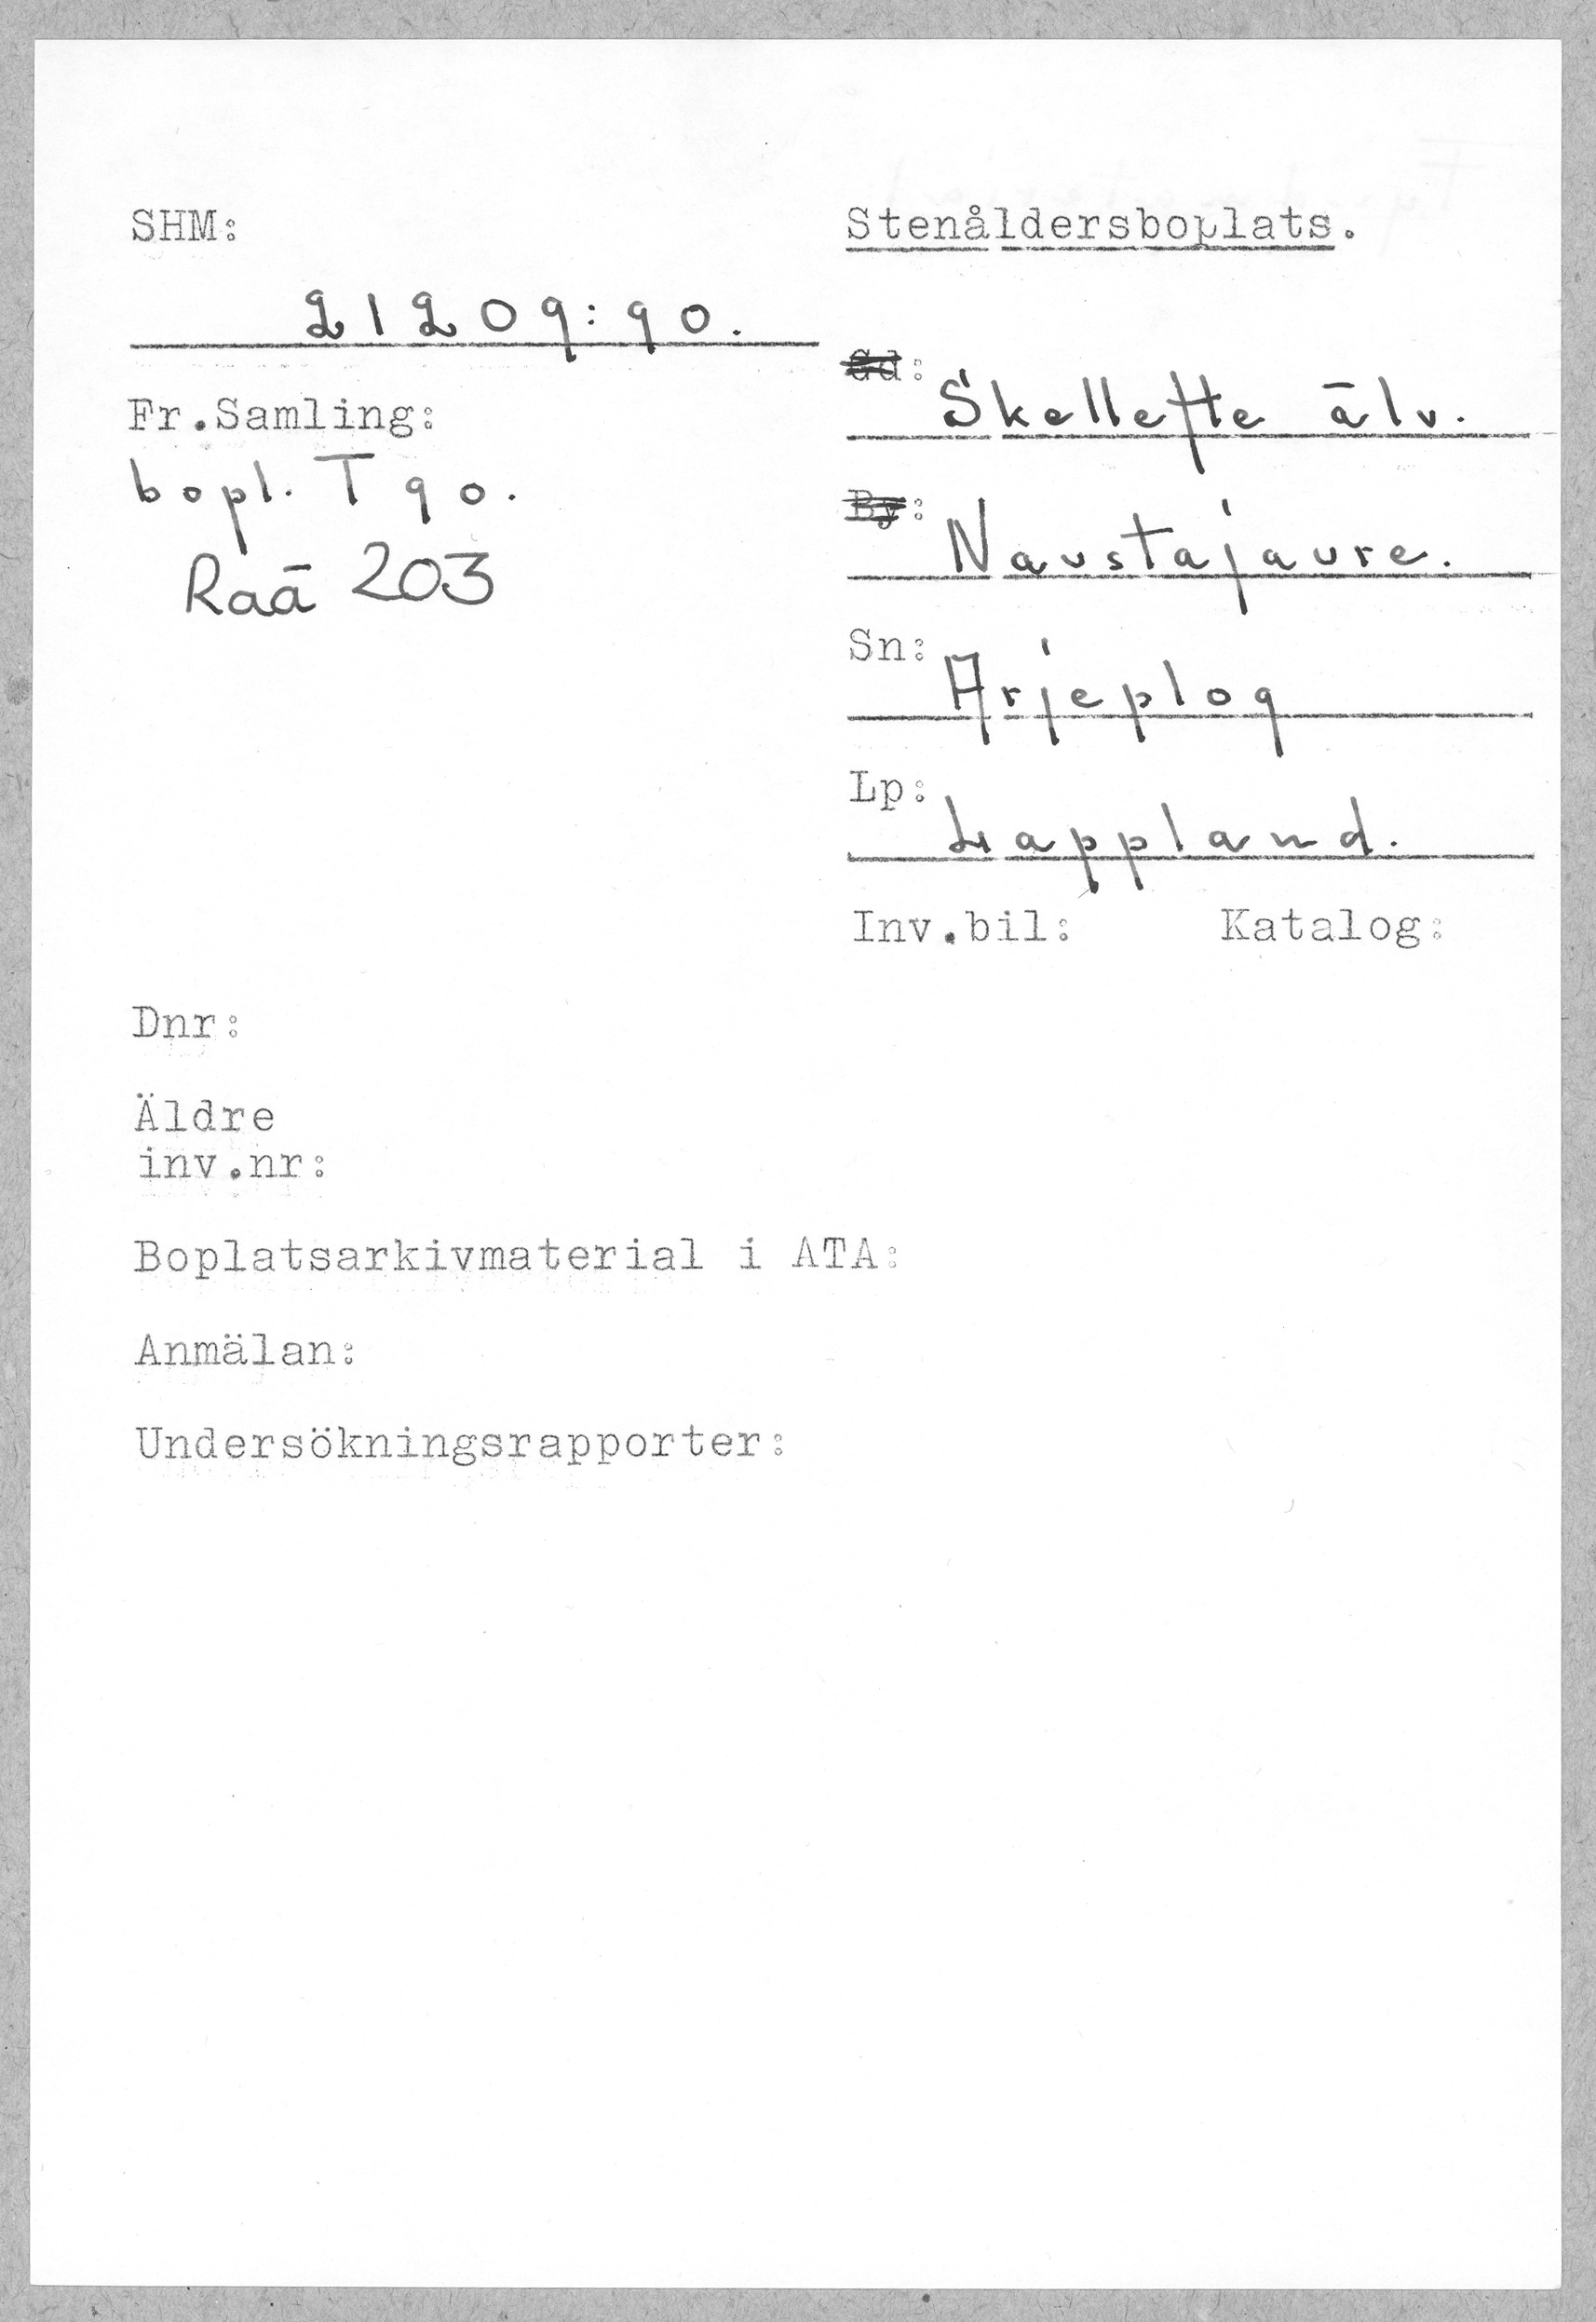 SHM:
21209:90.
Fr.Samling:
bopl. T 90.
Raä 203
Stenåldersboplats.
Gd:
Skellefte älv.
By:
Naustajaure.
Sn:
Arjeplog
Lp:
Lappland.
Inv.bil: Katalog:
Dnr:
Äldre
inv.nr:
Boplatsarkivmaterial i ATA:
Anmälan:
Undersökningsrapporter: